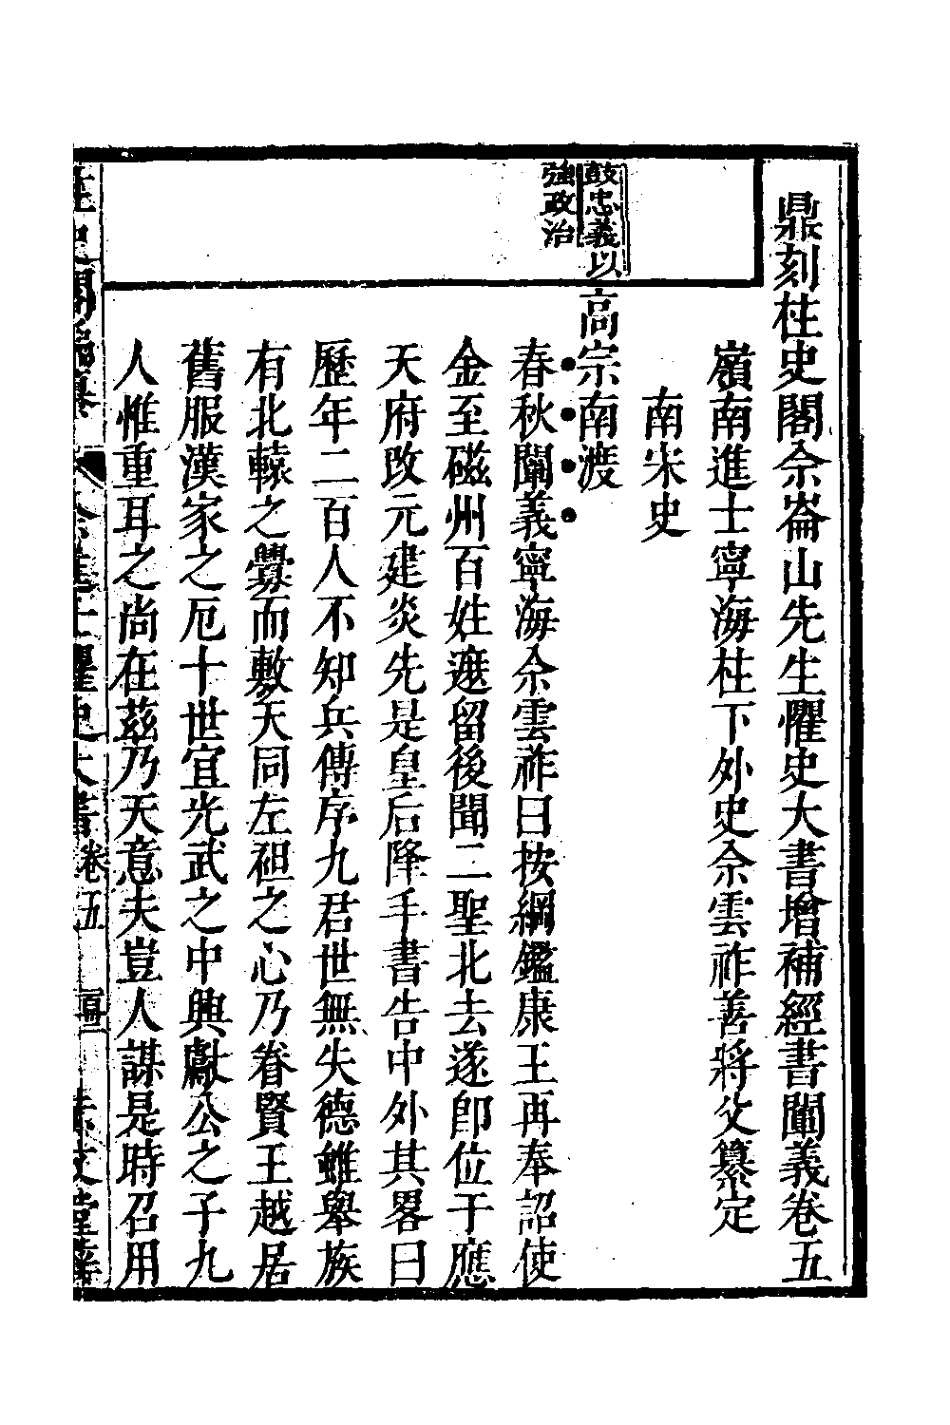 鼎刻柱史閣余崙山先生懼史大書增補經書闡義卷五
嶺南進士寧海柱下外史余雲祚善將父纂定
南宋史
鼓忠義以
強政治
高宗南渡
春秋闡義寧海余雲祚曰按綱鑑康王再奉詔使
金至磁州百姓遮留後聞二聖北去遂卽位于應
天府改元建炎先是皇后降手書告中外其畧曰
歷年二百人不知兵傳序九君世無失德雖舉族
有北轅之釁而敷天同左袒之心乃眷賢王越居
舊服漢家之厄十世宜光武之中興獻公之子九
人惟重耳之尚在茲乃天意夫豈人謀是時召用
卷五